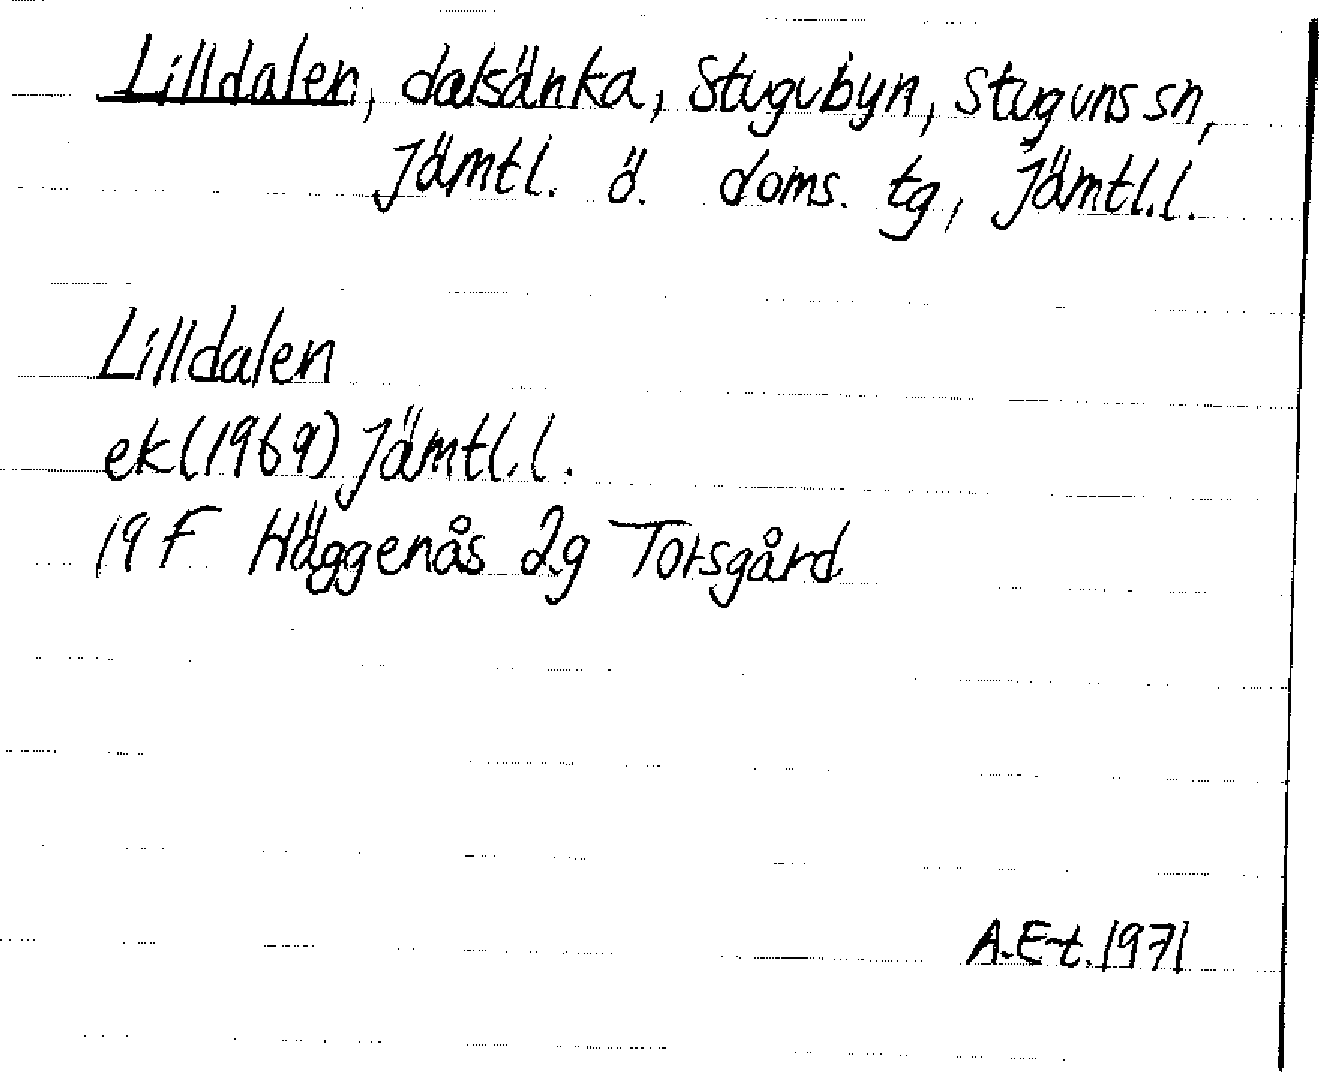 Lilldalen, dalsänka, Stugubyn, Stuguns sn,
Jämtl. ö. doms. tg, Jämtl.l.
Lilldalen
ek(1969) Jämtl.l.
19 F Häggenås 2g Torsgård
A.E-t. 1971